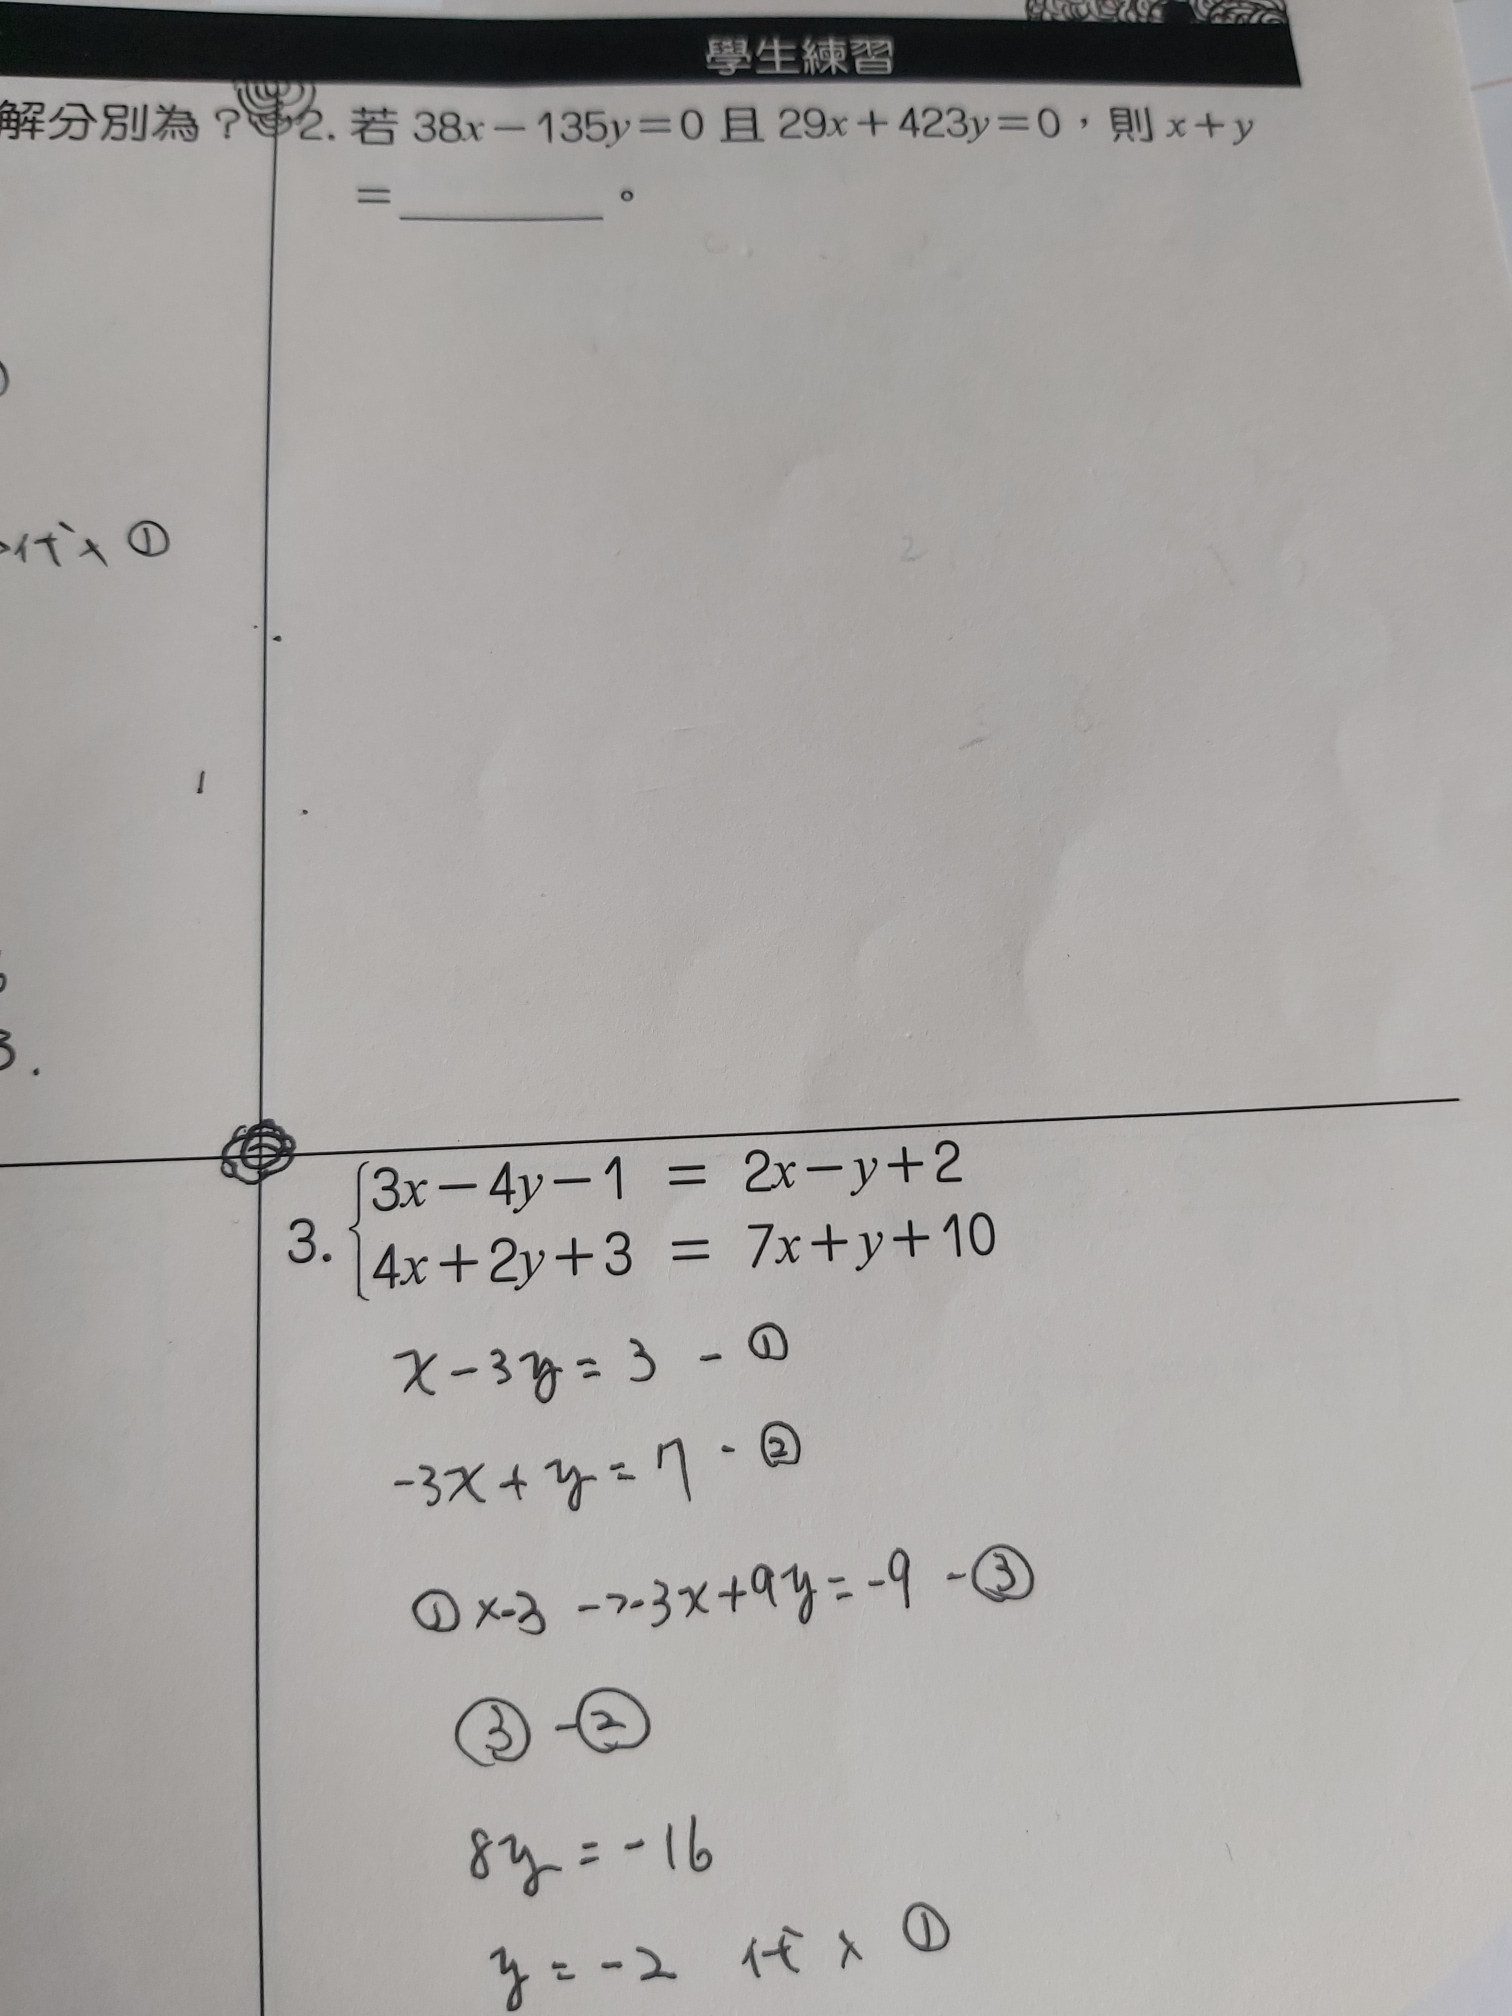 學生練習
解分別為?
2. 若 38x-135y=0 且 29x+423y=0,則 x+y
=________。
代入 ①
3.
3. {3x-4y-1 = 2x-y+2
4x+2y+3 = 7x+y+10
x-3y=3 - ①
-3x+y=7 - ②
①x-3 ->-3x+9y=-9 -③
③-②
8y=-16
y=-2 代入 ①